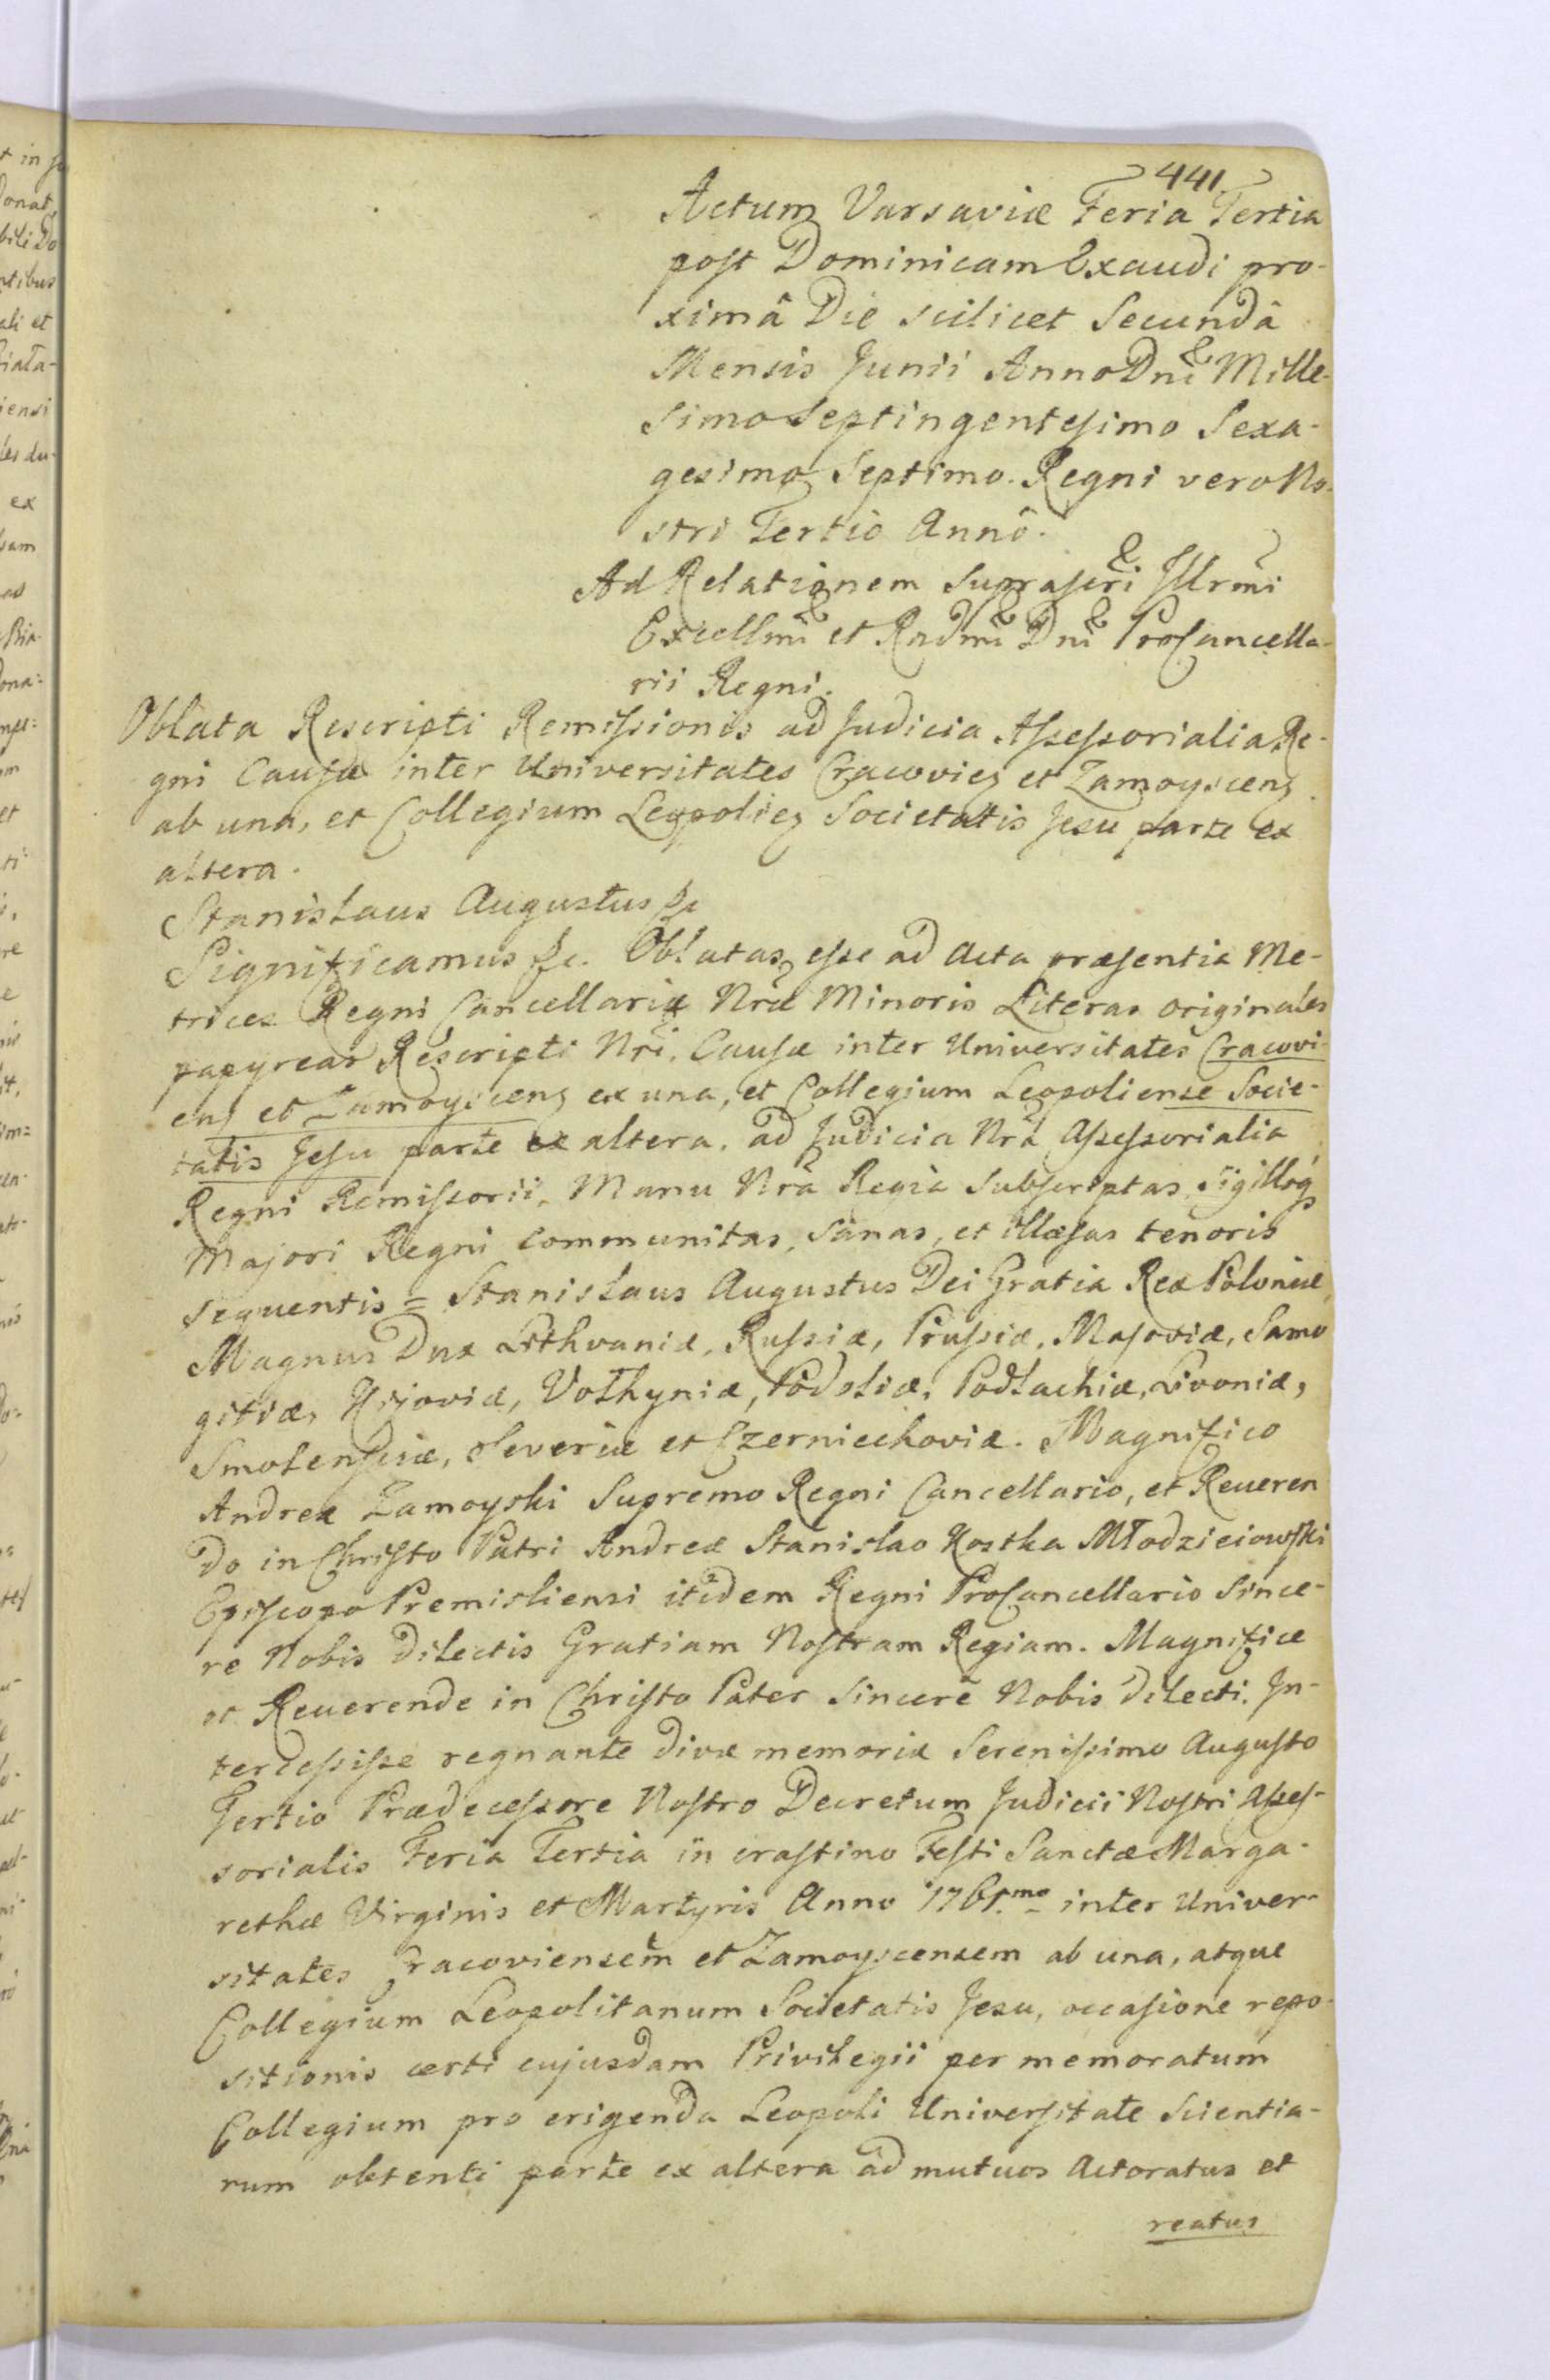 441
Actum Varsaviæ Feria Tertia
post Dominicam Exaudi pro-
ximâ Die scilicet Secundâ
Mensis Junii Anno Dni Mille-
simo Septingentesimo Sexa-
gesimo Septimo. Regni vero No-
stri Tertio Annô.
Ad Relationem Suprascri Illrmi
Excellmi et Rndmi Dni ProCancella-
rii Regni.
Oblata Rescripti Remissionis ad Judicia Assessorialia Re-
gni Causæ inter Universitates Cracovien et Zamoyscen
ab una, et Collegium Leopolien Societatis Jesu parte ex
altera.
Stanislaus Augustus &c
Significamus &c. Oblatas esse ad Acta præsentia Me-
trices Regni Cancellariæ Nræ Minoris Literas originales
papyreas Rescripti Nri, Causæ inter Universitates Cracovi-
en et Zamoyscen ex una, et Collegium Leopoliense Socie-
tatis Jesu parte ex altera, ad Judicia Nra Assessorialia
Regni Remissorii, Manu Nrâ Regiâ Subscriptas Sigilloq
Majori Regni communitas, sanas, et illæsas tenoris
sequentis = Stanislaus Augustus Dei Gratia Rex Poloniæ
Magnus Dux Lithvaniæ, Russiæ, Prussiæ, Masoviæ, Samo
gitiæ, Kijoviæ, Volhyniæ, Podoliæ, Podlachiæ, Livoniæ,
Smolensciæ, Severiæ et Czerniechoviæ. Magnifico
Andreæ Zamoyski Supremo Regni Cancellario, et Reveren
do in Christo Patri Andreæ Stanislao Kostka Młodzieiowski
Episcopo Premisliensi itidem Regni ProCancellario Since-
re Nobis Dilectis Gratiam Nostram Regiam. Magnifice
et Reverende in Christo Pater Sincere Nobis dilecti. In-
tercessisse regnante divæ memoriæ Serenissimo Augusto
Tertio Prædecessore Nostro Decretum Judicii Nostri Asses-
sorialis Feria Tertia in crastino Festi Sanctæ Marga-
rethæ Virginis et Martyris Anno 1761.mo inter Univer-
sitates Cracoviensem et Zamoyscensem ab una, atque
Collegium Leopolitanum Societatis Jesu, occasione repo-
sitionis certi cujusdam Privilegii per memoratum
Collegium pro erigenda Leopoli Universitate Scientia-
rum obtenti parte ex altera ad mutuos Actoratus et
reatus